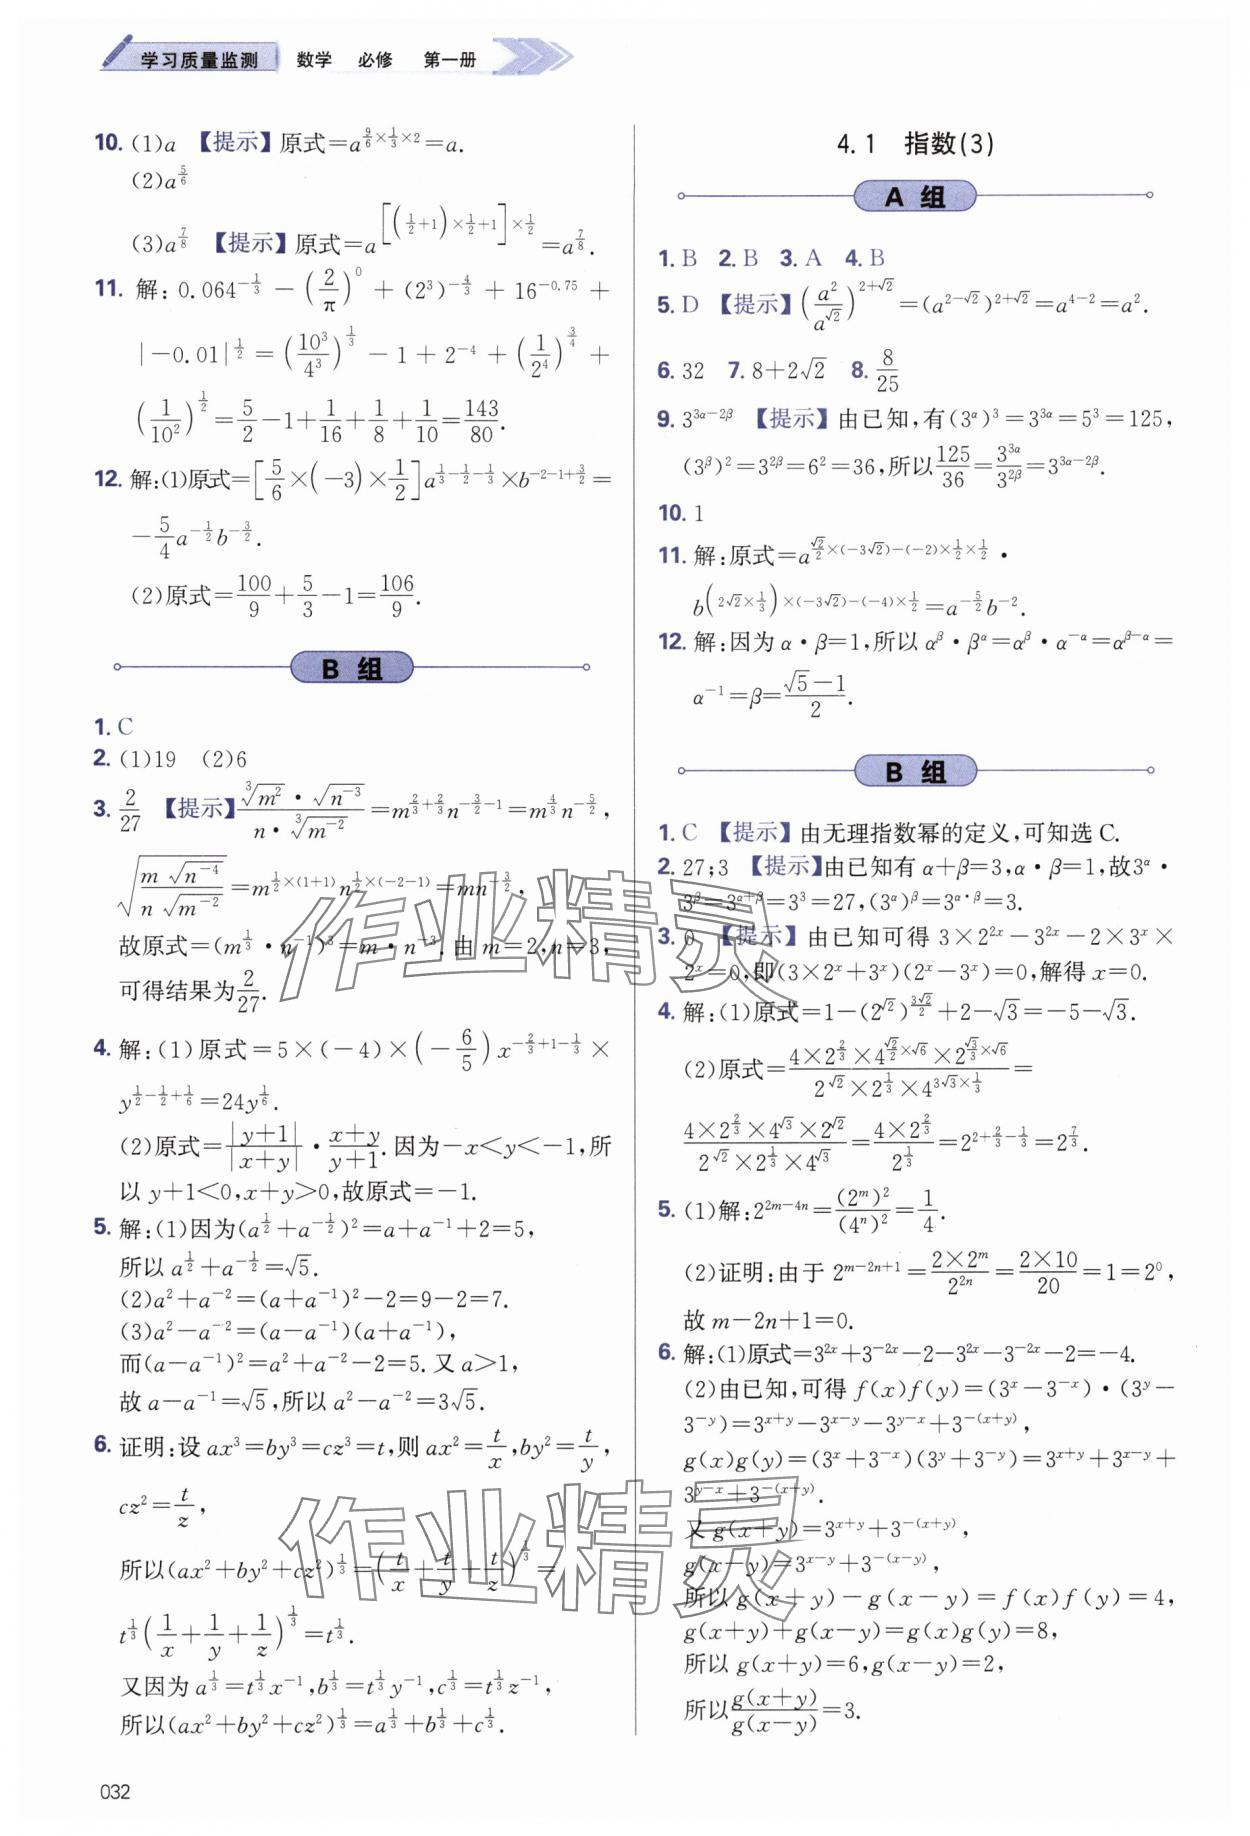 学习质量监测 数学 必修 第一册
10. (1)a 【提示】原式=a^{\frac{9}{6}×\frac{1}{3}×2}=a.
(2)a^{\frac{5}{6}}
(3)a^{\frac{7}{8}} 【提示】原式=a^{[(\frac{1}{2}+1)×\frac{1}{2}+1]×\frac{1}{2}}=a^{\frac{7}{8}}.
11. 解: 0.064^{-\frac{1}{3}} - (\frac{2}{π})^0 + (2^3)^{-\frac{4}{3}} + 16^{-0.75} +
|-0.01|^{\frac{1}{2}} = (\frac{10^3}{4^3})^{\frac{1}{3}} - 1 + 2^{-4} + (\frac{1}{2^4})^{\frac{3}{4}} +
(\frac{1}{10^2})^{\frac{1}{2}} = \frac{5}{2}-1+\frac{1}{16}+\frac{1}{8}+\frac{1}{10}=\frac{143}{80}.
12. 解:(1)原式=[\frac{5}{6}×(-3)×\frac{1}{2}]a^{\frac{1}{3}-\frac{1}{2}-\frac{1}{3}}×b^{-2-1+\frac{3}{2}}=
-\frac{5}{4}a^{-\frac{1}{2}}b^{-\frac{3}{2}}.
(2)原式=\frac{100}{9}+\frac{5}{3}-1=\frac{106}{9}.
B 组
1. C
2. (1)19 (2)6
3. \frac{2}{27} 【提示】\frac{\sqrt[3]{m^2}·\sqrt{n^{-3}}}{n·\sqrt[3]{m^{-2}}}=m^{\frac{2}{3}+\frac{2}{3}}n^{-\frac{3}{2}-1}=m^{\frac{4}{3}}n^{-\frac{5}{2}},
\sqrt{\frac{m\sqrt{n^{-4}}}{n\sqrt{m^{-2}}}}=m^{\frac{1}{2}×(1+1)}n^{\frac{1}{2}×(-2-1)}=mn^{-\frac{3}{2}},
故原式=(m^{\frac{1}{3}}·n^{-1})^3=m·n^{-3}.由 m=2,n=3,
可得结果为\frac{2}{27}.
4. 解:(1)原式=5×(-4)×(-\frac{6}{5})x^{-\frac{2}{3}+1-\frac{1}{3}}×
y^{\frac{1}{2}-\frac{1}{2}+\frac{1}{6}}=24y^{\frac{1}{6}}.
(2)原式=\frac{|y+1|}{|x+y|}·\frac{x+y}{y+1}.因为-x<y<-1,所
以 y+1<0,x+y>0,故原式=-1.
5. 解:(1)因为(a^{\frac{1}{2}}+a^{-\frac{1}{2}})^2=a+a^{-1}+2=5,
所以 a^{\frac{1}{2}}+a^{-\frac{1}{2}}=\sqrt{5}.
(2)a^2+a^{-2}=(a+a^{-1})^2-2=9-2=7.
(3)a^2-a^{-2}=(a-a^{-1})(a+a^{-1}),
而(a-a^{-1})^2=a^2+a^{-2}-2=5.又 a>1,
故 a-a^{-1}=\sqrt{5},所以 a^2-a^{-2}=3\sqrt{5}.
6. 证明:设 ax^3=by^3=cz^3=t,则 ax^2=\frac{t}{x},by^2=\frac{t}{y},
cz^2=\frac{t}{z},
所以(ax^2+by^2+cz^2)^{\frac{1}{3}}=(\frac{t}{x}+\frac{t}{y}+\frac{t}{z})^{\frac{1}{3}}=
t^{\frac{1}{3}}(\frac{1}{x}+\frac{1}{y}+\frac{1}{z})^{\frac{1}{3}}=t^{\frac{1}{3}}.
又因为 a^{\frac{1}{3}}=t^{\frac{1}{3}}x^{-1},b^{\frac{1}{3}}=t^{\frac{1}{3}}y^{-1},c^{\frac{1}{3}}=t^{\frac{1}{3}}z^{-1},
所以(ax^2+by^2+cz^2)^{\frac{1}{3}}=a^{\frac{1}{3}}+b^{\frac{1}{3}}+c^{\frac{1}{3}}.
032
4.1 指数(3)
A 组
1. B 2. B 3. A 4. B
5. D 【提示】(\frac{a^2}{a^{\sqrt{2}}})^{2+\sqrt{2}}=(a^{2-\sqrt{2}})^{2+\sqrt{2}}=a^{4-2}=a^2.
6. 32 7. 8+2\sqrt{2} 8. \frac{8}{25}
9. 3^{3α-2β} 【提示】由已知,有(3^α)^3=3^{3α}=5^3=125,
(3^β)^2=3^{2β}=6^2=36,所以\frac{125}{36}=\frac{3^{3α}}{3^{2β}}=3^{3α-2β}.
10. 1
11. 解:原式=a^{\frac{\sqrt{2}}{2}×(-3\sqrt{2})-(-2)×\frac{1}{2}×\frac{1}{2}}·
b^{(2\sqrt{2}×\frac{1}{3})×(-3\sqrt{2})-(-4)×\frac{1}{2}}=a^{-\frac{5}{2}}b^{-2}.
12. 解:因为 α·β=1,所以 α^β·β^α=α^β·α^{-α}=α^{β-α}=
α^{-1}=β=\frac{\sqrt{5}-1}{2}.
B 组
1. C 【提示】由无理指数幂的定义,可知选 C.
2. 27;3 【提示】由已知有 α+β=3,α·β=1,故3^α·
3^β=3^{α+β}=3^3=27,(3^α)^β=3^{α·β}=3.
3. 0 【提示】由已知可得 3×2^{2x}-3^{2x}-2×3^x×
2^x=0,即(3×2^x+3^x)(2^x-3^x)=0,解得 x=0.
4. 解:(1)原式=1-(2^{\sqrt{2}})^{\frac{3\sqrt{2}}{2}}+2-\sqrt{3}=-5-\sqrt{3}.
(2)原式=\frac{4×2^{\frac{2}{3}}×4^{\frac{\sqrt{2}}{2}×\sqrt{6}}×2^{\frac{\sqrt{3}}{3}×\sqrt{6}}}{2^{\sqrt{2}}×2^{\frac{1}{3}}×4^{3\sqrt{3}×\frac{1}{3}}}=
\frac{4×2^{\frac{2}{3}}×4^{\sqrt{3}}×2^{\sqrt{2}}}{2^{\sqrt{2}}×2^{\frac{1}{3}}×4^{\sqrt{3}}}=\frac{4×2^{\frac{2}{3}}}{2^{\frac{1}{3}}}=2^{2+\frac{2}{3}-\frac{1}{3}}=2^{\frac{7}{3}}.
5. (1)解:2^{2m-4n}=\frac{(2^m)^2}{(4^n)^2}=\frac{1}{4}.
(2)证明:由于 2^{m-2n+1}=\frac{2×2^m}{2^{2n}}=\frac{2×10}{20}=1=2^0,
故 m-2n+1=0.
6. 解:(1)原式=3^{2x}+3^{-2x}-2-3^{2x}-3^{-2x}-2=-4.
(2)由已知,可得 f(x)f(y)=(3^x-3^{-x})·(3^y-
3^{-y})=3^{x+y}-3^{x-y}-3^{y-x}+3^{-(x+y)},
g(x)g(y)=(3^x+3^{-x})(3^y+3^{-y})=3^{x+y}+3^{x-y}+
3^{y-x}+3^{-(x+y)}.
又 g(x+y)=3^{x+y}+3^{-(x+y)},
g(x-y)=3^{x-y}+3^{-(x-y)},
所以 g(x+y)-g(x-y)=f(x)f(y)=4,
g(x+y)+g(x-y)=g(x)g(y)=8,
所以 g(x+y)=6,g(x-y)=2,
所以\frac{g(x+y)}{g(x-y)}=3.
作业精灵
作业精灵